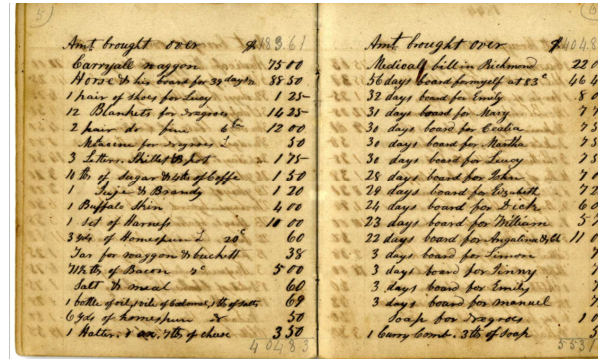 5
Amt. brought over $183.61
Carryall waggon 75 00
Horse & his board for 39 days 88 50
1 pair of shoes for Lucy 1 25
12 Blankets for negroes 14 25
2 pair do fine 6 12 00
Medicine for negroes 50
3 Letters. Skillet & pot 1 75
10 lb. of sugar & 4 lb of Coffe 1 50
1 & Brandy 1 20
1 Buffalo Skin 4 00
1 set of Harness 10 00
3 yds of Homespun 20c 60
Tar for waggon & buckett 38
71½ lb. of Bacon 7c 5 00
Salt & meal 60
1 bottle of oil, 1 vile of Calomel, 1 lb of salts 69
6 yds of homespun 50
1 Halter, & ax, 7 lb. of cheese 3 50
404 83
6
Amt. brought over $404 8
Medical bill in Richmond 22 0
56 days board for myself at 83c 46 4
32 days board for Emily 8 0
31 days board for Mary 7 7
30 days board for Cealia 7 5
30 days board for Martha 7 5
30 days board for Lucy 7 5
28 days board for John 7 0
29 days board for Elizabeth 7 2
24 days board for Dick 6 0
23 days board for William 5 7
22 days board for Angalina & 11 0
3 days board for Simon 7
3 days board for Jinny 7
3 days board for Emily 7
3 days board for Manuel 7
Soap for negroes 1 0
1 Curry Comb. 3 lb of soap 5
553